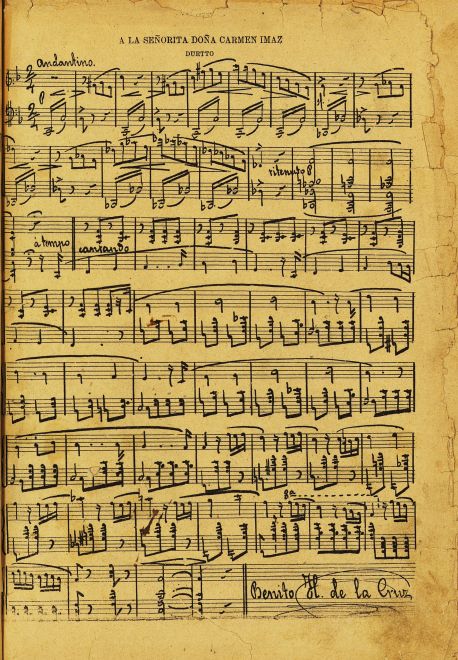 A LA SEÑORITA DOÑA CARMEN IMAZ
DUETTO
Andantino.
p
ritenuto
a tempo cantando
8ª
Benito H. de la Cruz